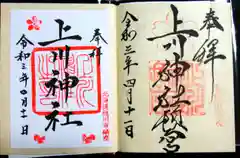 奉拝
上川神社
令和三年四月十一日
奉拝
上川神社頓宮
令和三年四月十一日